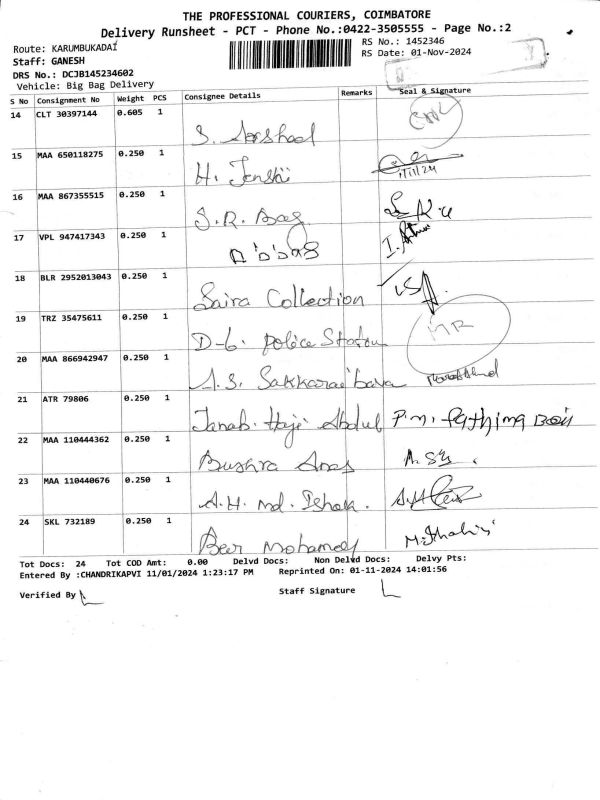 THE PROFESSIONAL COURIERS, COIMBATORE
Delivery Runsheet - PCT - Phone No.:0422-3505555 - Page No.:2
Route: KARUMBUKADAI
RS No.: 1452346
Staff: GANESH
RS Date: 01-Nov-2024
DRS No.: DCJB145234602
Vehicle: Big Bag Delivery
S No Consignment No Weight PCS Consignee Details Remarks Seal & Signature
14 CLT 30397144 0.605 1
S. Arshad
15 MAA 650118275 0.250 1
H. Jenshi
1/11/24
16 MAA 867355515 0.250 1
S.R. Bag
17 VPL 947417343 0.250 1
18 BLR 2952013043 0.250 1
Saira Collection
19 TRZ 35475611 0.250 1
D-6. Police Station
20 MAA 866942947 0.250 1
A.S. Sakkarai bava
21 ATR 79806 0.250 1
Janab. Haji Abdul P.M. Fathima
22 MAA 110444362 0.250 1
Bushra Anas
23 MAA 110440676 0.250 1
A.H. md. Ishak.
24 SKL 732189 0.250 1
Beer Mohamed
Tot Docs: 24 Tot COD Amt: 0.00 Delvd Docs: Non Delvd Docs: Delvy Pts:
Entered By :CHANDRIKAPVI 11/01/2024 1:23:17 PM Reprinted On: 01-11-2024 14:01:56
Verified By
Staff Signature